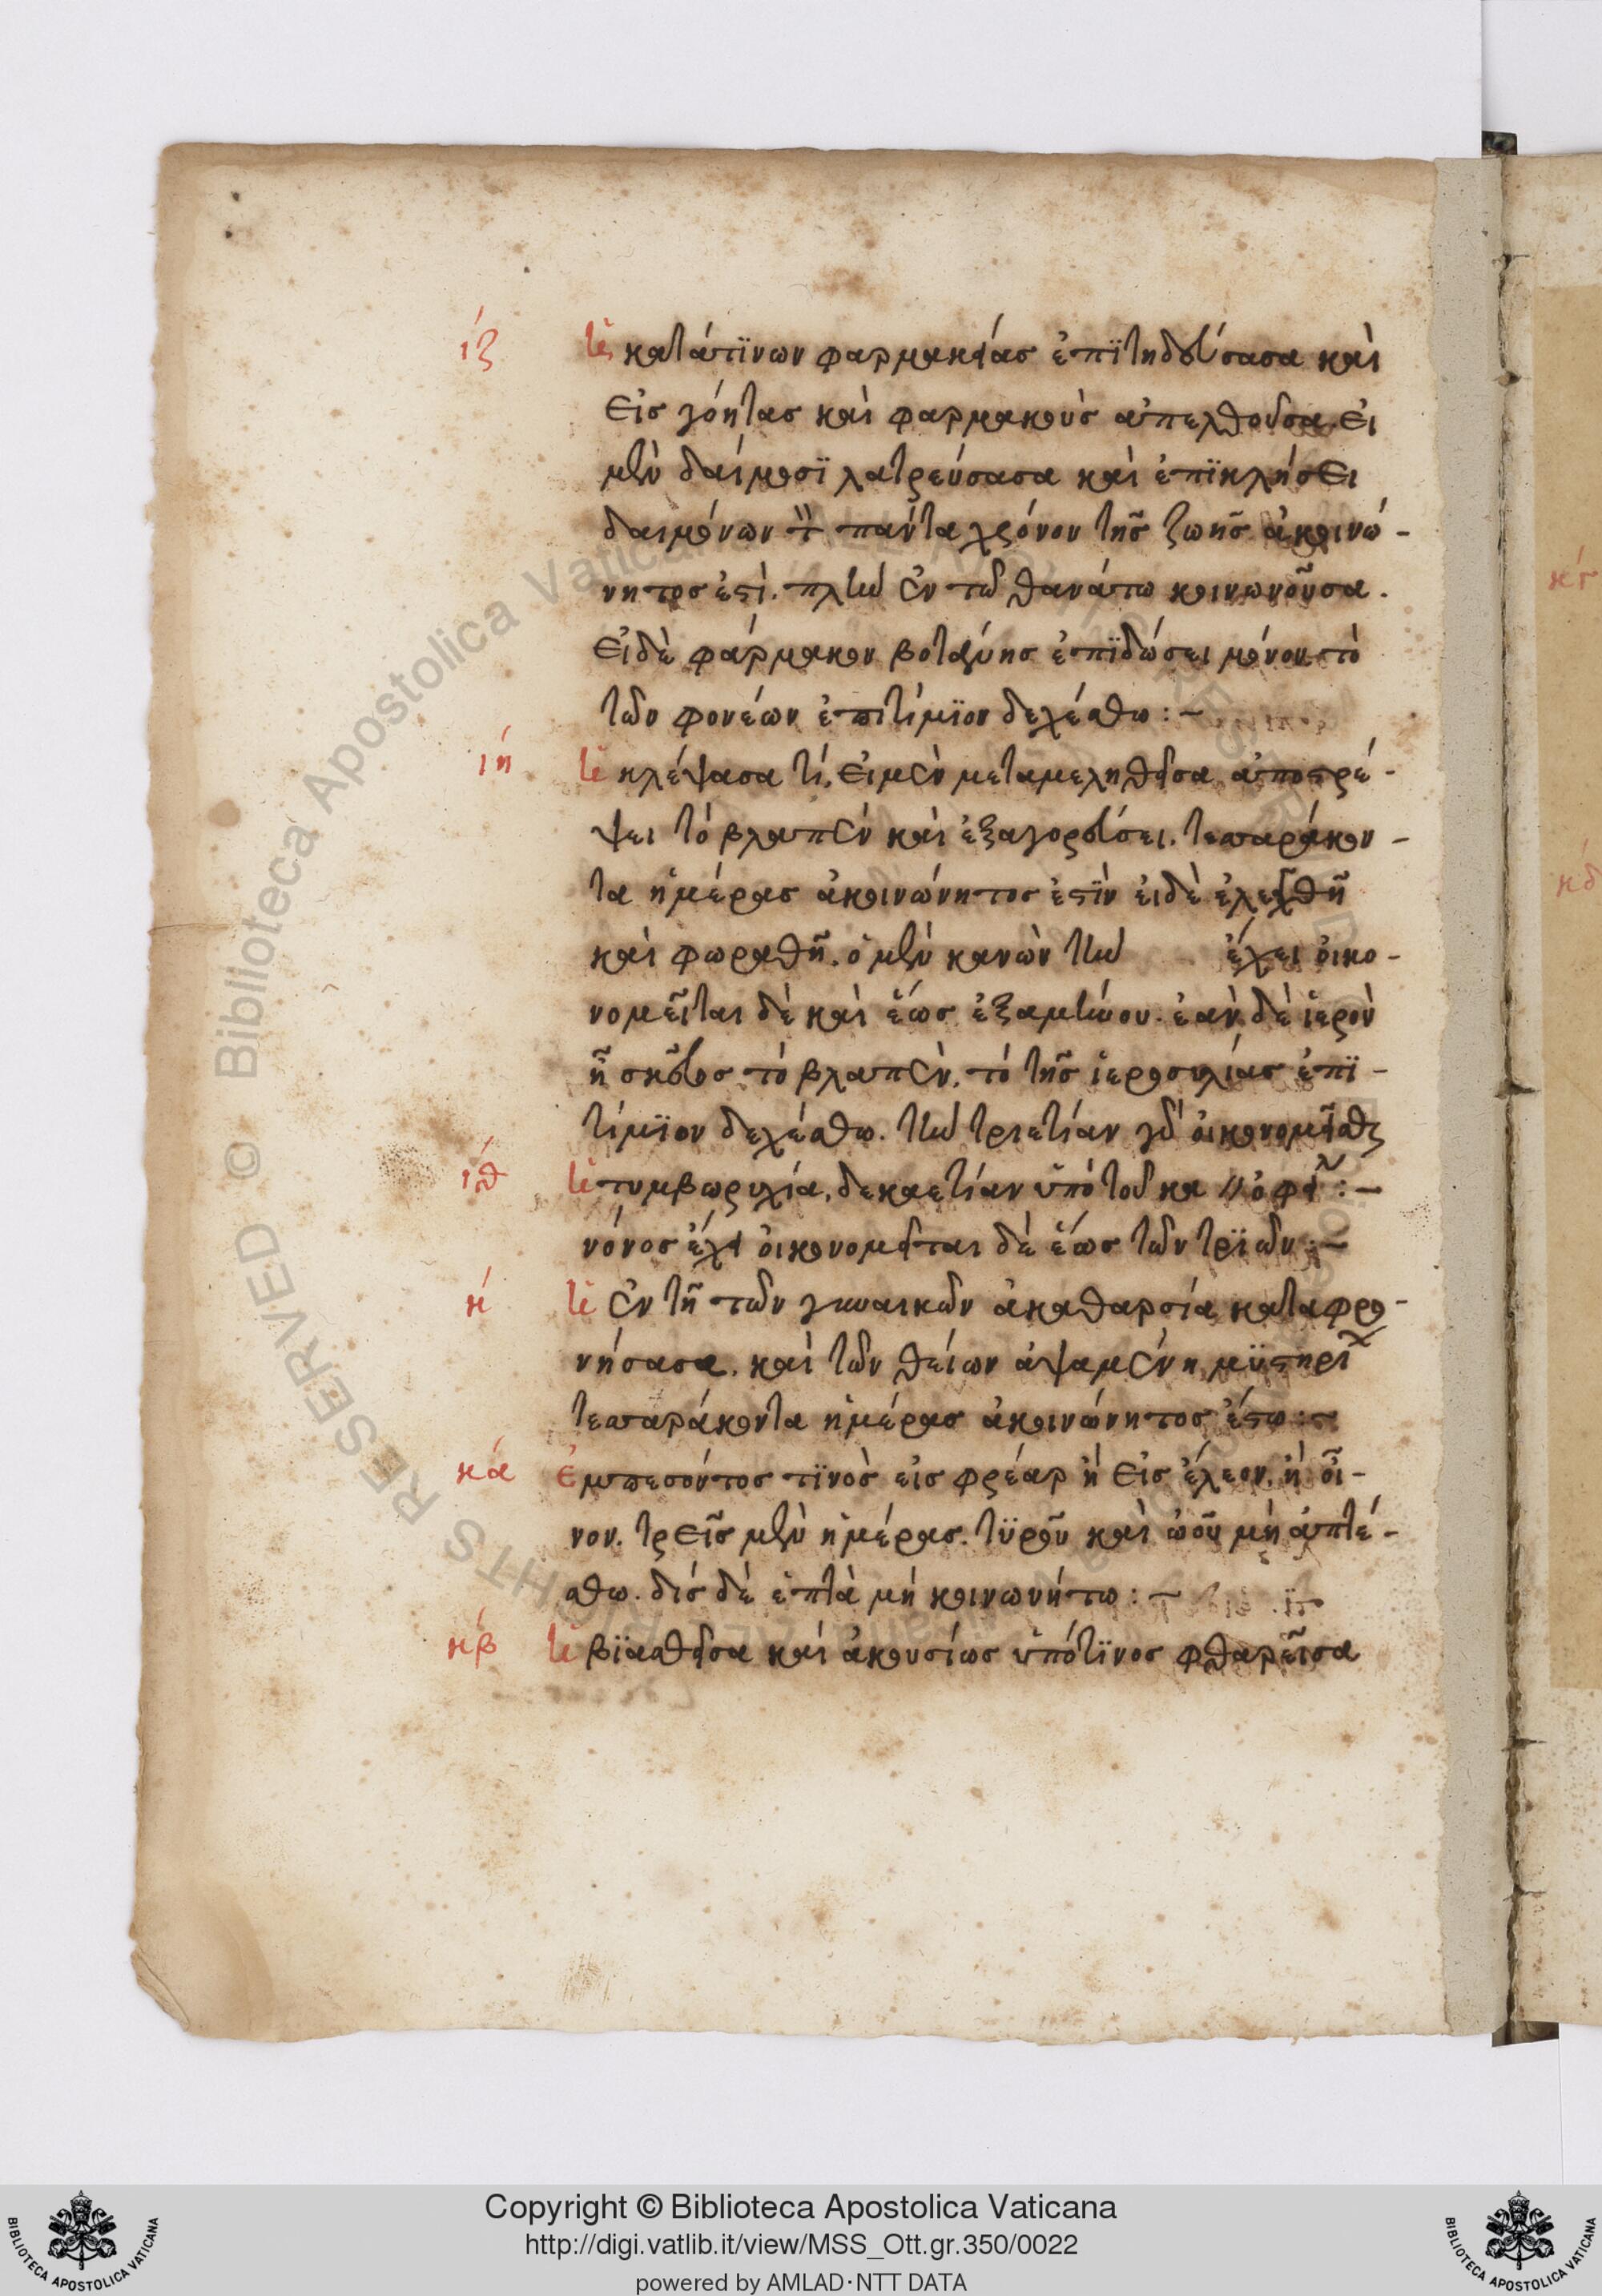 ιζ Ἡ κατάτϊνων φαρμακείας ἐπϊτηδεύσασα καὶ
εἰς γόητας καὶ φαρμακοὺς ἀπελθοῦσα. εἰ
μὲν δαίμοσϊ λατρεύσασα καὶ ἐπϊκλήσει
δαιμόνων τὸν πάντα χρόνον τῆς ζωῆς ἀκοινώ-
νητος ἐστὶ. πλὴν ἐν τῶ θανάτω κοινωνοῦσα.
Εἰδὲ φάρμακον βοτάνης ἐπϊδώσει μόνον τὸ
τῶν φονέων ἐπιτίμϊον δεχέσθω:–
ιή κλέψασα τί. εἰμὲν μεταμεληθεῖσα ἀποστρέ-
ψει τὸ βλαπὲν καὶ ἐξαγορεύσει. τεσσαράκον-
τα ἡμέρας ἀκοινώνητος ἐστϊν εἰδὲ ἐλεγχθῆ
καὶ φωραθῆ. ὁ μὲν κανὼν τὴν ἔχει οἰκο-
νομεῖται δὲ καὶ ἕως ἑξαμήνου. ἐὰν δὲ ἱερὸν
ἦ σκεῦος τὸ βλαπὲν. τὸ τῆς ἱεροσυλίας ἐπϊ-
τίμϊον δεχέσθω. τὴν τριετίαν γοῦν οἰκονομεῖσθαι
ιθ τυμβωρυχία. δεκαετίαν ὑπὸ τοῦ κα // ὀφεῖ:–
νόνος ἔχει οἰκονομεῖται δὲ ἕως τῶν τρϊῶν:–
κ ἐν τῆ τῶν γυναικῶν ἀκαθαρσία καταφρο-
νήσασα. καὶ τῶν θείων ἁψαμένη μϋστηρί
τεσσαράκοντα ἡμέρας ἀκοινώνητος ἔστω:–
κά ἐμπεσόντος τϊνὸς εἰς φρέαρ ἢ εἰς ἔλεον. ἢ οἶ-
νον. τρεῖς μὲν ἡμέρας. τϋροῦ καὶ ὠοῦ μὴ ἁπτέ-
σθω. δίς δὲ ἑπτὰ μὴ κοινωνήτω:–
κβ βϊασθεῖσα καὶ ἀκουσίως ὑπότϊνος φθαρεῖσα
κγ
κδ
Copyright © Biblioteca Apostolica Vaticana
http://digi.vatlib.it/view/MSS_Ott.gr.350/0022
powered by AMLAD·NTT DATA